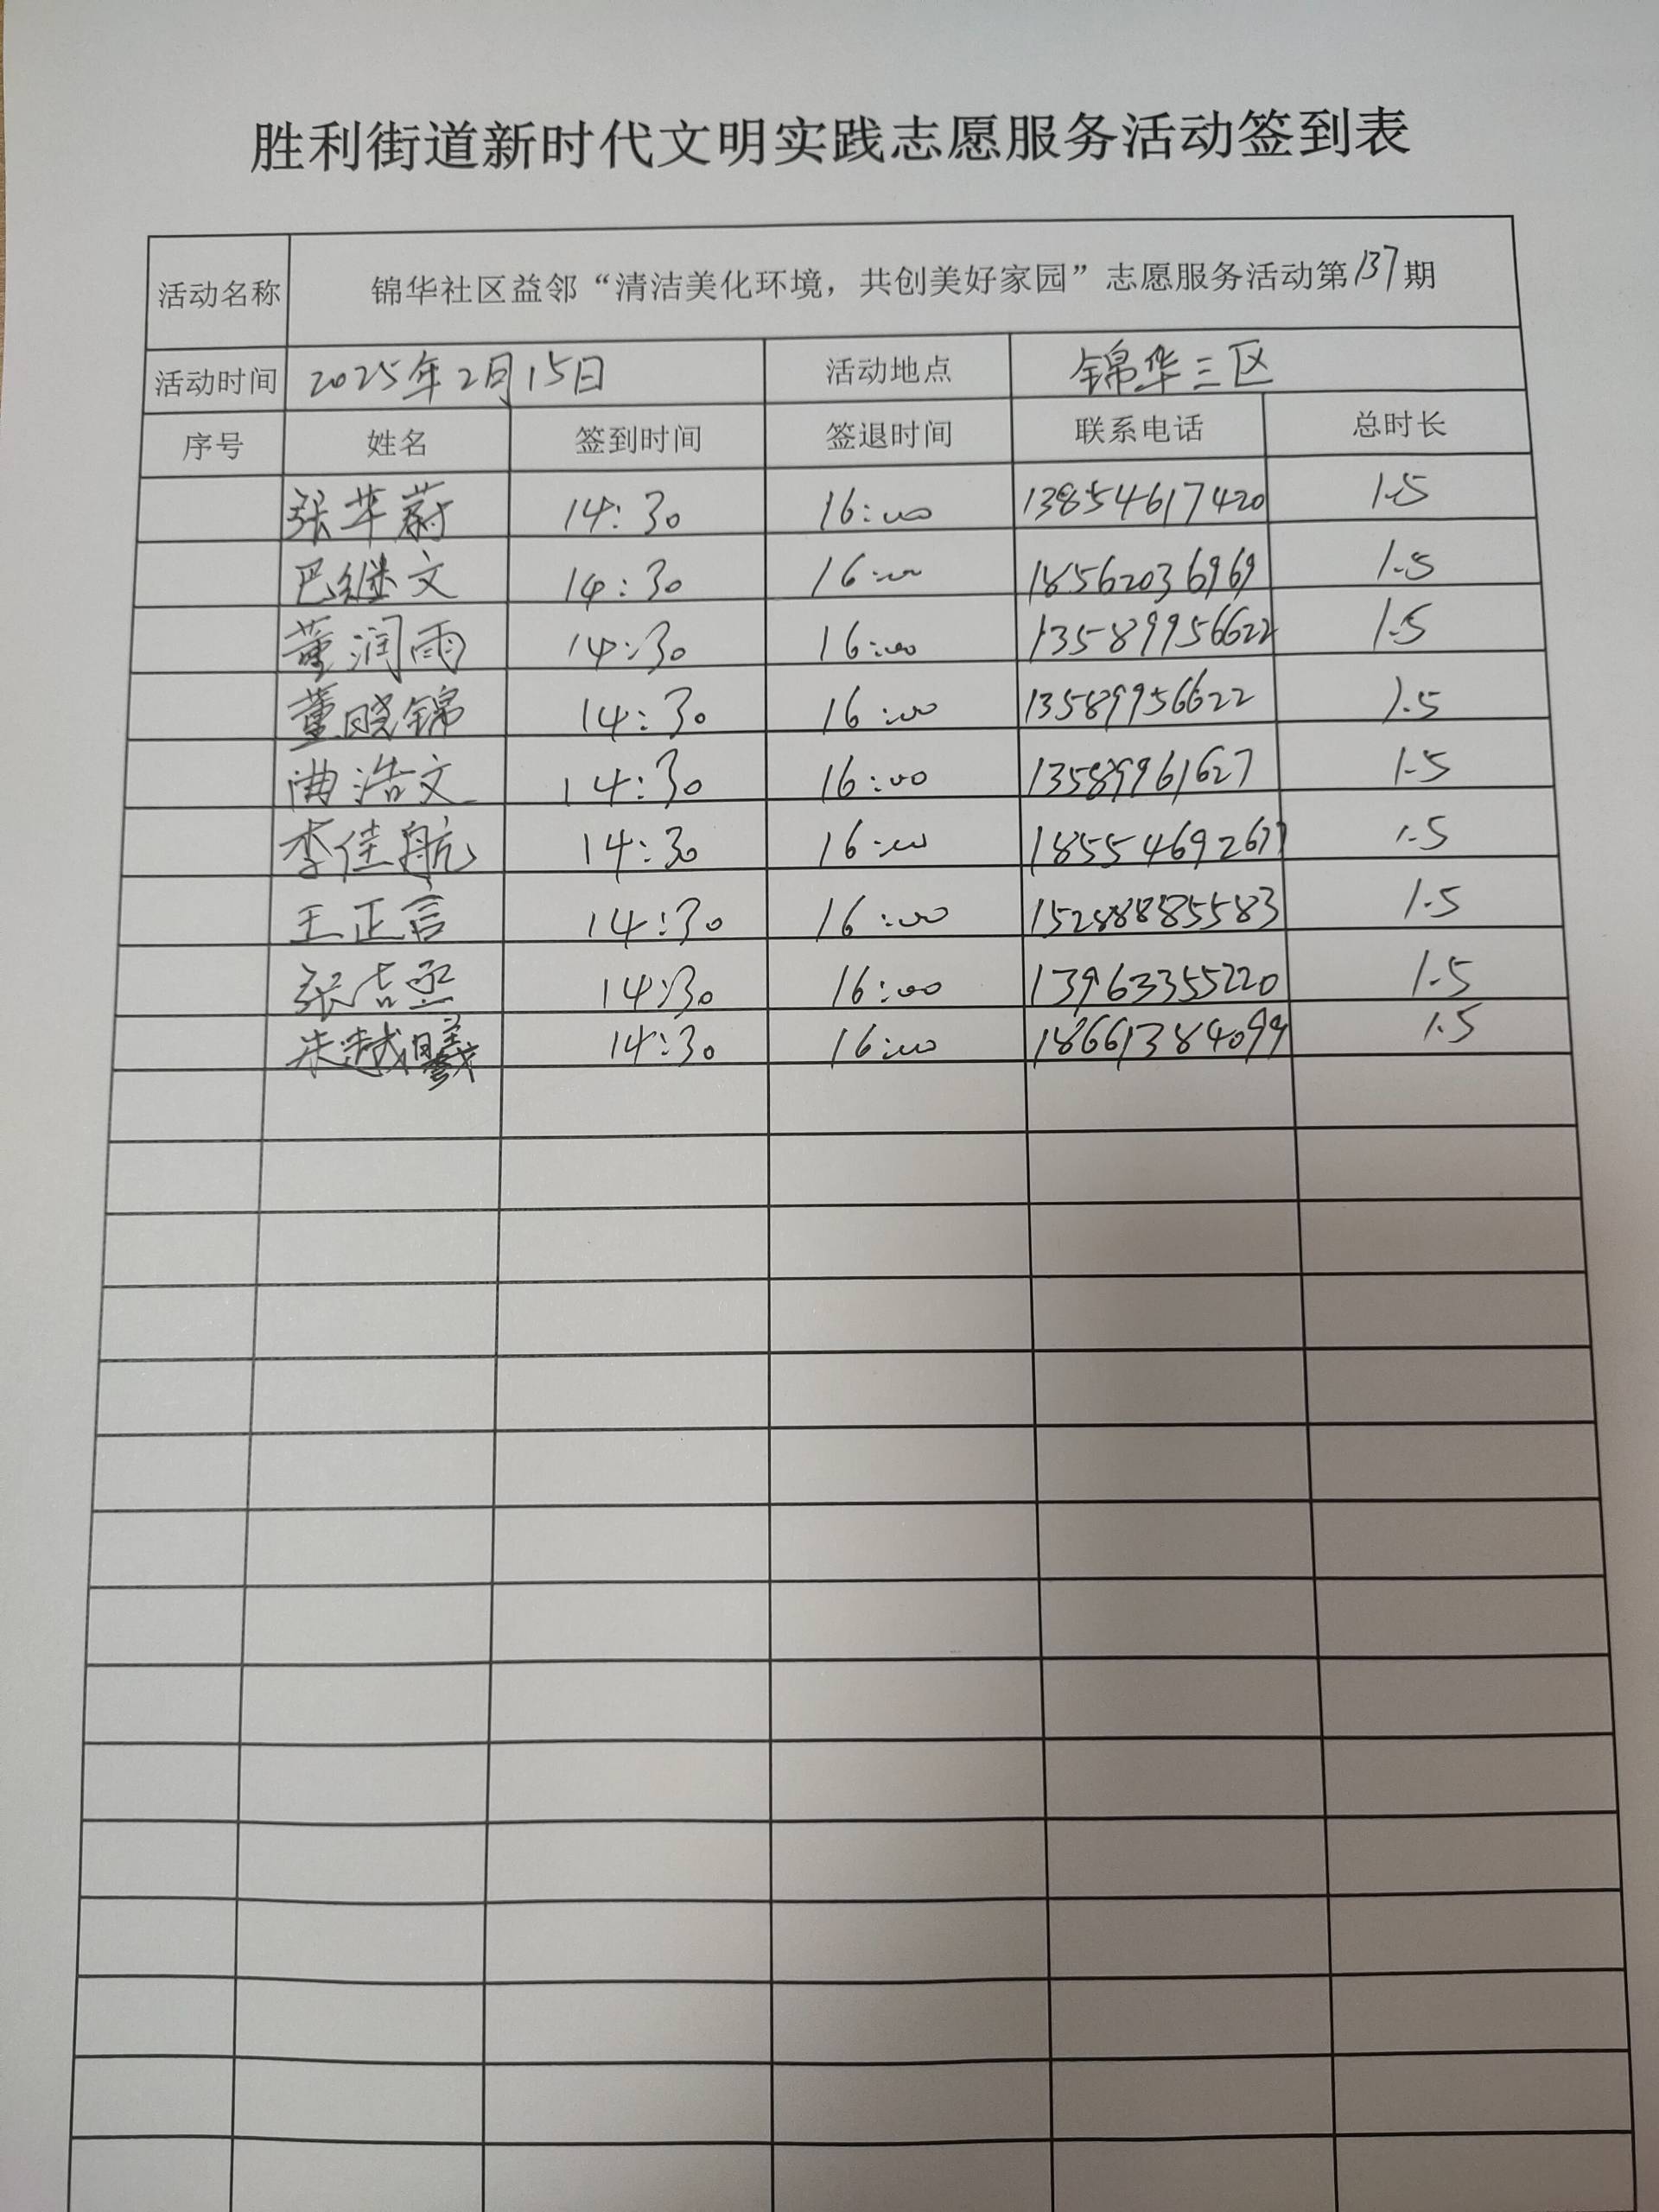 胜利街道新时代文明实践志愿服务活动签到表
活动名称 锦华社区益邻“清洁美化环境，共创美好家园”志愿服务活动第137期
活动时间 2025年2月15日 活动地点 锦华三区
序号 姓名 签到时间 签退时间 联系电话 总时长
张芈蔚 14:30 16:00 13854617420 1.5
巴继文 14:30 16:00 18562036969 1.5
董润雨 14:30 16:00 13589956622 1.5
董晓锦 14:30 16:00 13589956622 1.5
曲浩文 14:30 16:00 13589961627 1.5
李佳航 14:30 16:00 18554692677 1.5
王正言 14:30 16:00 15288885583 1.5
张吉丞 14:30 16:00 13963355220 1.5
朱越曦 14:30 16:00 18661384099 1.5